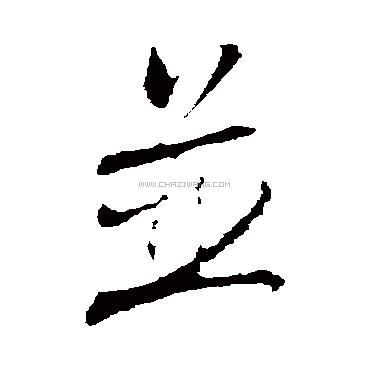 並
WWW.CHAZIWANG.COM